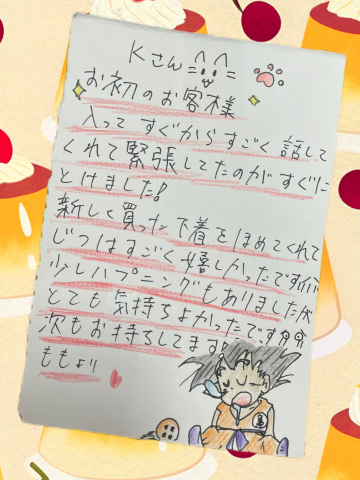 Kさん
お初のお客様
入ってすぐからすごく話して
くれて緊張してたのがすぐに
とけました!
新しく買った下着をほめてくれて
じつはすごく嬉しかったです
少しハプニングもありましたが
とても気持ちよかったです
次もお待ちしてます
ももより
亀